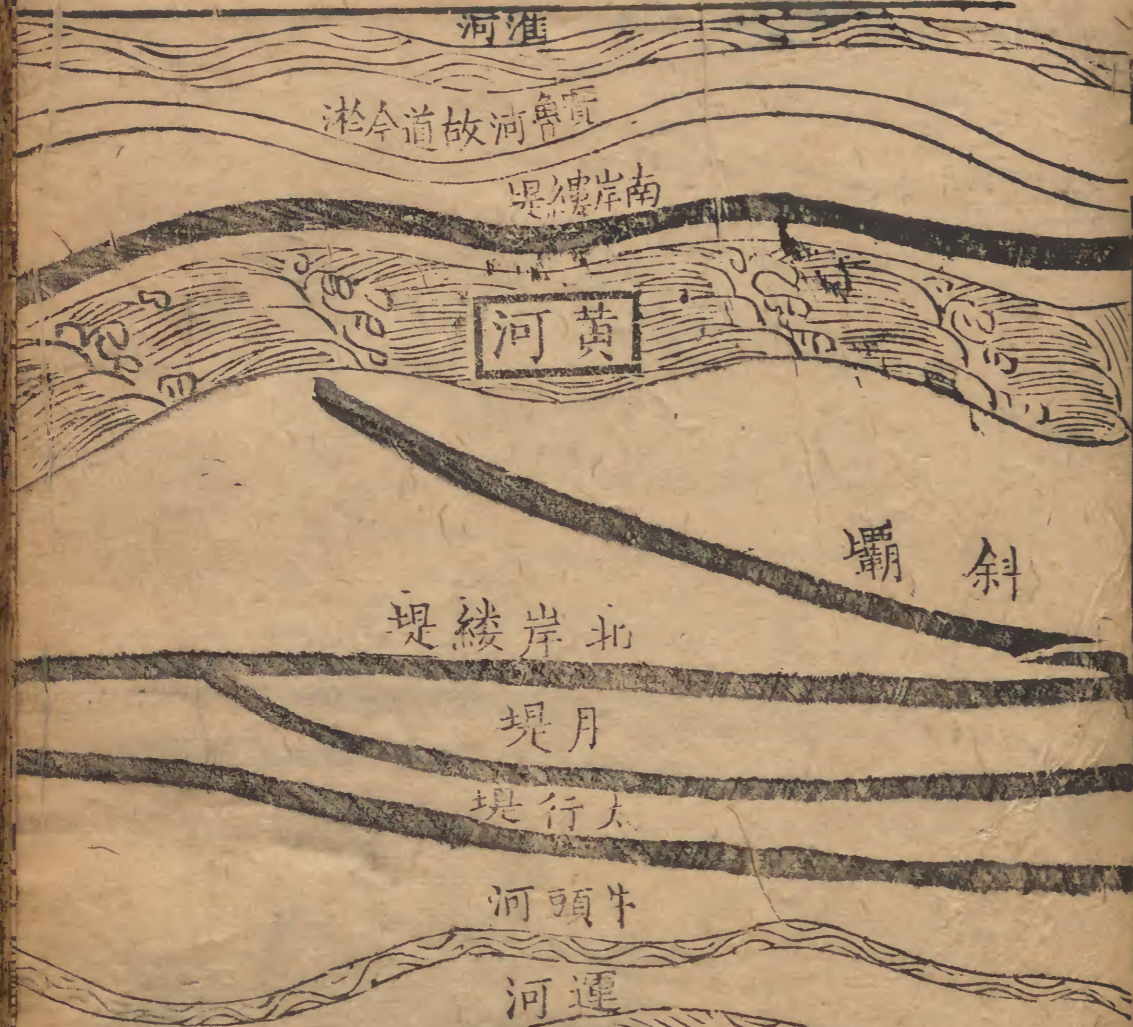 淮河
賈魯河故道今淤
南岸縷堤
黃河
斜壩
北岸縷堤
月堤
太行堤
牛頭河
運河